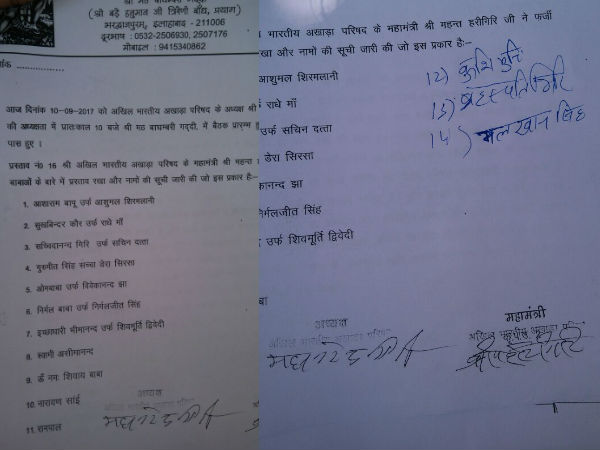 श्री मठ बाघम्बरी गद्दी
(श्री बड़े हनुमान जी त्रिवेणी बाँध, प्रयाग)
भरद्वाजपुरम्, इलाहाबाद - 211006
दूरभाष : 0532-2506930, 2507176
मोबाइल : 9415340862
आज दिनांक 10-09-2017 को अखिल भारतीय अखाड़ा परिषद के अध्यक्ष श्री
की अध्यक्षता में प्रातःकाल 10 बजे श्री मठ बाघम्बरी गद्दी, में बैठक प्रारम्भ हु
पास हुए ।
प्रस्ताव नं0 16 श्री अखिल भारतीय अखाड़ा परिषद के महामंत्री श्री महन्त
बाबाओं के बारे में प्रस्ताव रखा और नामों की सूची जारी की जो इस प्रकार है:–
1. आशाराम बापू उर्फ आशुमल शिरमलानी
2. सुखबिन्दर कौर उर्फ राधे माँ
3. सच्चिदानन्द गिरि उर्फ सचिन दत्ता
4. गुरमीत सिंह सच्चा डेरा सिरसा
5. ओमबाबा उर्फ विवेकानन्द झा
6. निर्मल बाबा उर्फ निर्मलजीत सिंह
7. इच्छाधारी भीमानन्द उर्फ शिवमूर्ति द्विवेदी
8. स्वामी असीमानन्द
9. ऊँ नमः शिवाय बाबा
10. नारायण सांई
11. रामपाल
अध्यक्ष
अखिल भारतीय अखाड़ा परिषद
भारतीय अखाड़ा परिषद के महामंत्री श्री महन्त हरीगिरि जी ने फर्जी
रखा और नामों की सूची जारी की जो इस प्रकार है:–
आशुमल शिरमलानी
राधे माँ
उर्फ सचिन दत्ता
डेरा सिरसा
कानन्द झा
निर्मलजीत सिंह
उर्फ शिवमूर्ति द्विवेदी
बा
12) कुशि मुनि
13) बृहस्पति गिरि
14) मलखान सिंह
अध्यक्ष
अखिल भारतीय अखाड़ा परिषद
महामंत्री
अखिल भारतीय अखाड़ा परिषद